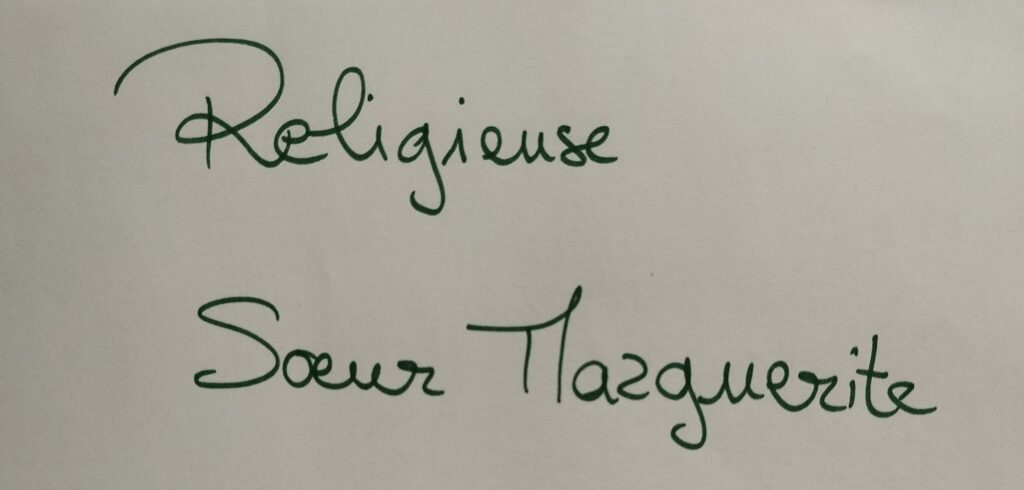 Religieuse
Sœur Marguerite